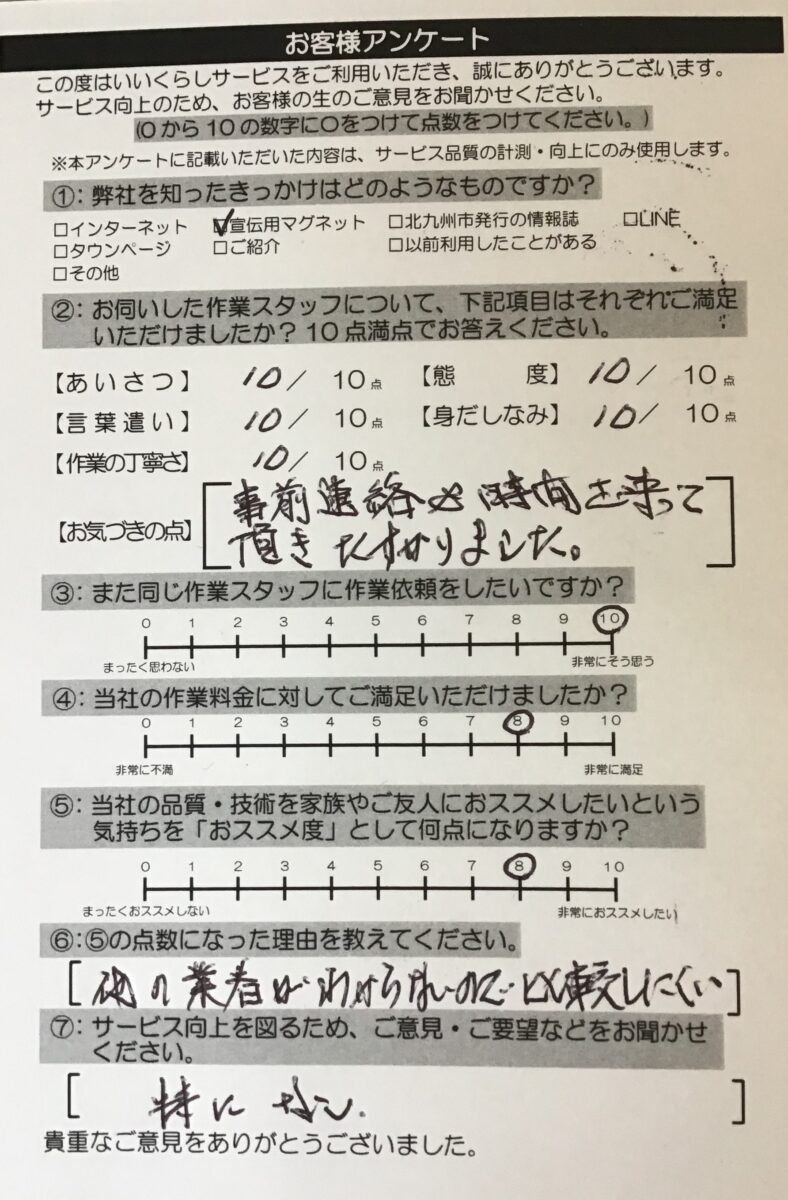 お客様アンケート
この度はいいくらしサービスをご利用いただき、誠にありがとうございます。
サービス向上のため、お客様の生のご意見をお聞かせください。
(0から10の数字に○をつけて点数をつけてください。)
※本アンケートに記載いただいた内容は、サービス品質の計測・向上にのみ使用します。
①：弊社を知ったきっかけはどのようなものですか？
□インターネット ☑宣伝用マグネット □北九州市発行の情報誌 □LINE
□タウンページ □ご紹介 □以前利用したことがある
□その他
②：お伺いした作業スタッフについて、下記項目はそれぞれご満足
いただけましたか？10点満点でお答えください。
【あいさつ】 10/ 10点 【態度】 10/ 10点
【言葉遣い】 10/ 10点 【身だしなみ】 10/ 10点
【作業の丁寧さ】 10/ 10点
【お気づきの点】
事前連絡や時間に来って
頂きたすかりました。
③：また同じ作業スタッフに作業依頼をしたいですか？
0 1 2 3 4 5 6 7 8 9 10
まったく思わない 非常にそう思う
④：当社の作業料金に対してご満足いただけましたか？
0 1 2 3 4 5 6 7 8 9 10
非常に不満 非常に満足
⑤：当社の品質・技術を家族やご友人におススメしたいという
気持ちを「おススメ度」として何点になりますか？
0 1 2 3 4 5 6 7 8 9 10
まったくおススメしない 非常におススメしたい
⑥：⑤の点数になった理由を教えてください。
[他の業者がわからないので比較しにくい]
⑦：サービス向上を図るため、ご意見・ご要望などをお聞かせ
ください。
[特になし.]
貴重なご意見をありがとうございました。